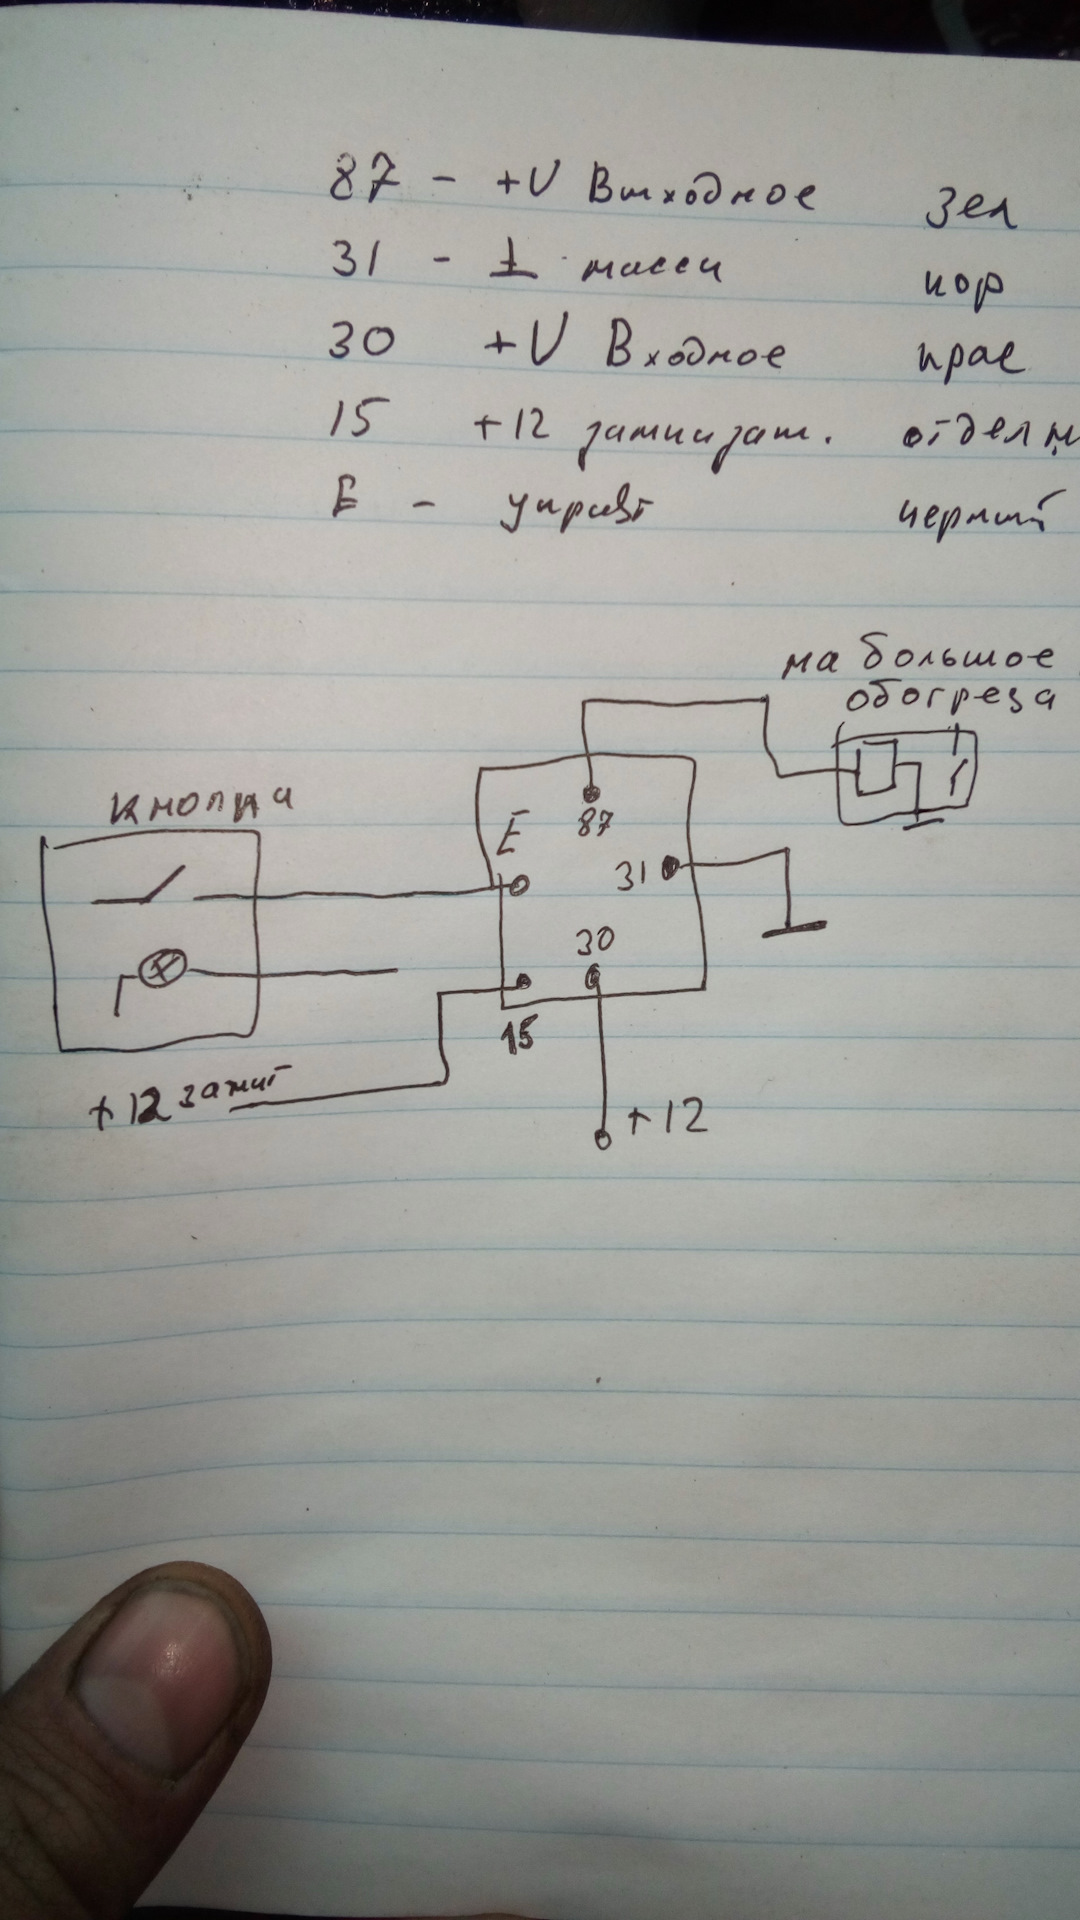 87 - +U Выходное зел
31 - ⊥ массы кор
30 +U Входное крас
15 +12 отделн
E - управт черный
на большое
обогрева
кнопка
E
87
31
30
15
+12 зажиг
+12